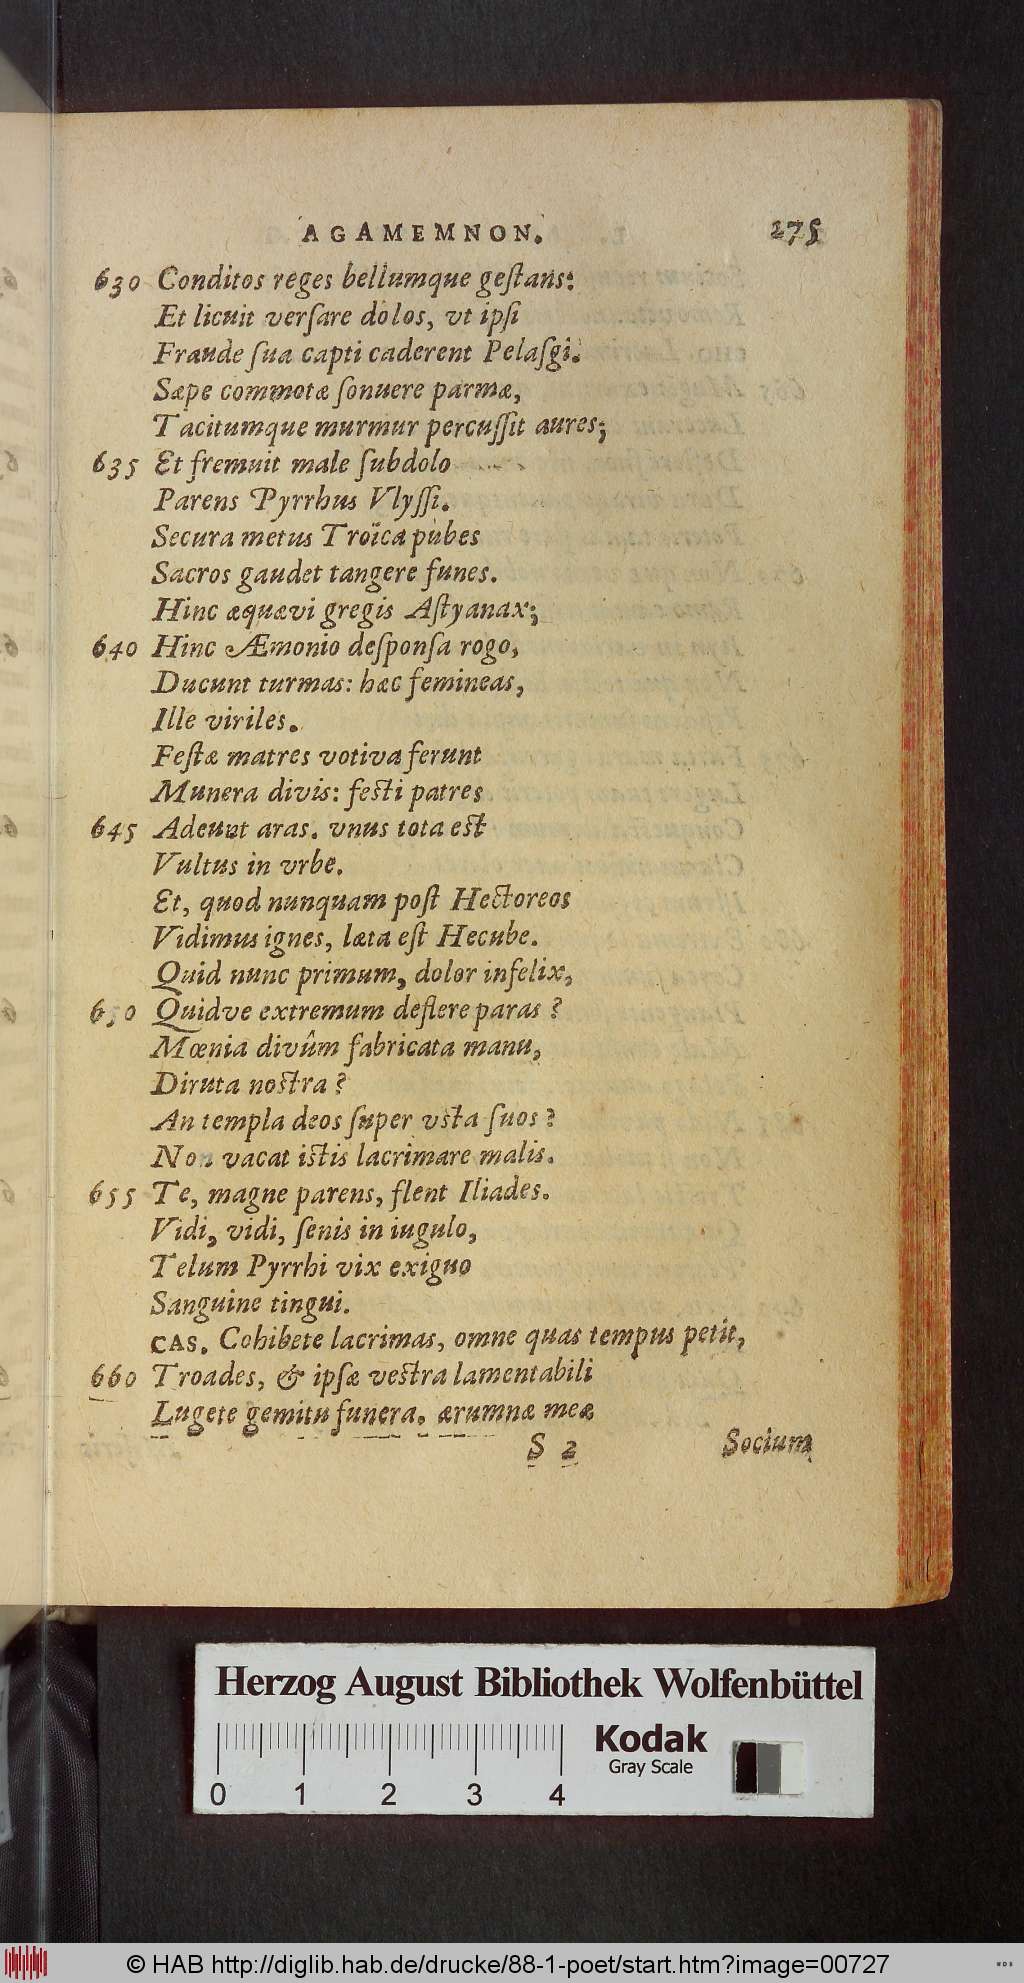 AGAMEMNON. 275
630 Conditos reges bellumque geſtans:
Et licuit verſare dolos, vt ipſi
Fraude ſua capti caderent Pelaſgi.
Sæpe commotæ ſonuere parmæ,
Tacitumque murmur percuſſit aures;
635 Et fremuit male ſubdolo
Parens Pyrrhus Vlyſſi.
Secura metus Troïca pubes
Sacros gaudet tangere funes.
Hinc æquævi gregis Aſtyanax;
640 Hinc Æmonio deſponſa rogo,
Ducunt turmas: hæc femineas,
Ille viriles.
Feſtæ matres votiva ferunt
Munera divis: feſti patres
645 Adeunt aras. vnus tota eſt
Vultus in vrbe.
Et, quod nunquam poſt Hectoreos
Vidimus ignes, læta eſt Hecube.
Quid nunc primum, dolor infelix,
650 Quidve extremum deflere paras?
Mœnia divûm fabricata manu,
Diruta noſtra?
An templa deos ſuper vſta ſuos?
Non vacat iſtis lacrimare malis.
655 Te, magne parens, flent Iliades.
Vidi, vidi, ſenis in iugulo,
Telum Pyrrhi vix exiguo
Sanguine tingui.
CAS. Cohibete lacrimas, omne quas tempus petit,
660 Troades, & ipſæ veſtra lamentabili
Lugete gemitu funera. ærumnæ meæ
S 2 Socium
Herzog August Bibliothek Wolfenbüttel
Kodak
Gray Scale
0 1 2 3 4
© HAB http://diglib.hab.de/drucke/88-1-poet/start.htm?image=00727